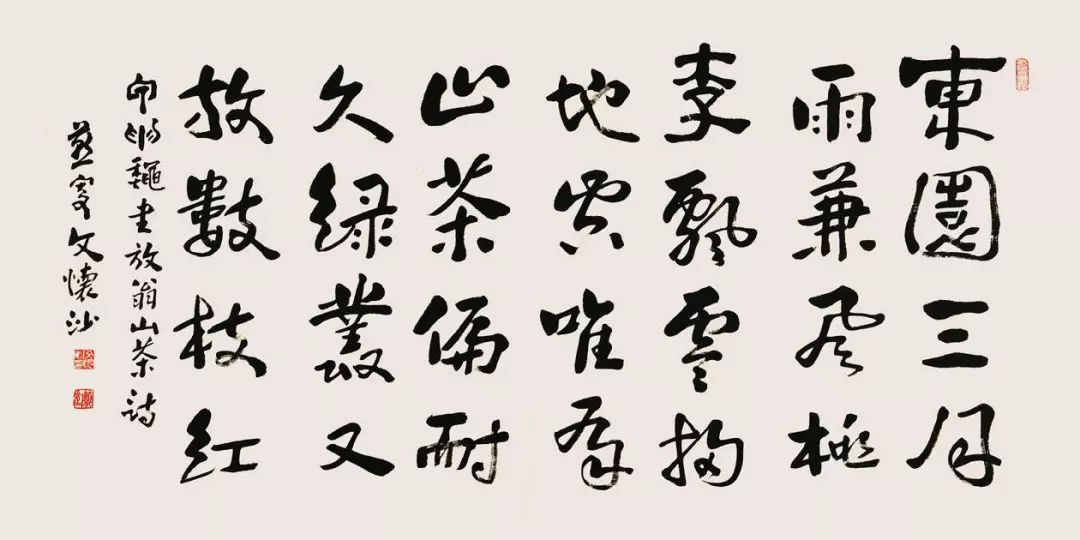 東園三月
雨兼風桃
李飄零掃
地空唯有
山茶偏耐
久綠叢又
放數枝紅
龝書放翁山茶詩
燕叟文懷沙